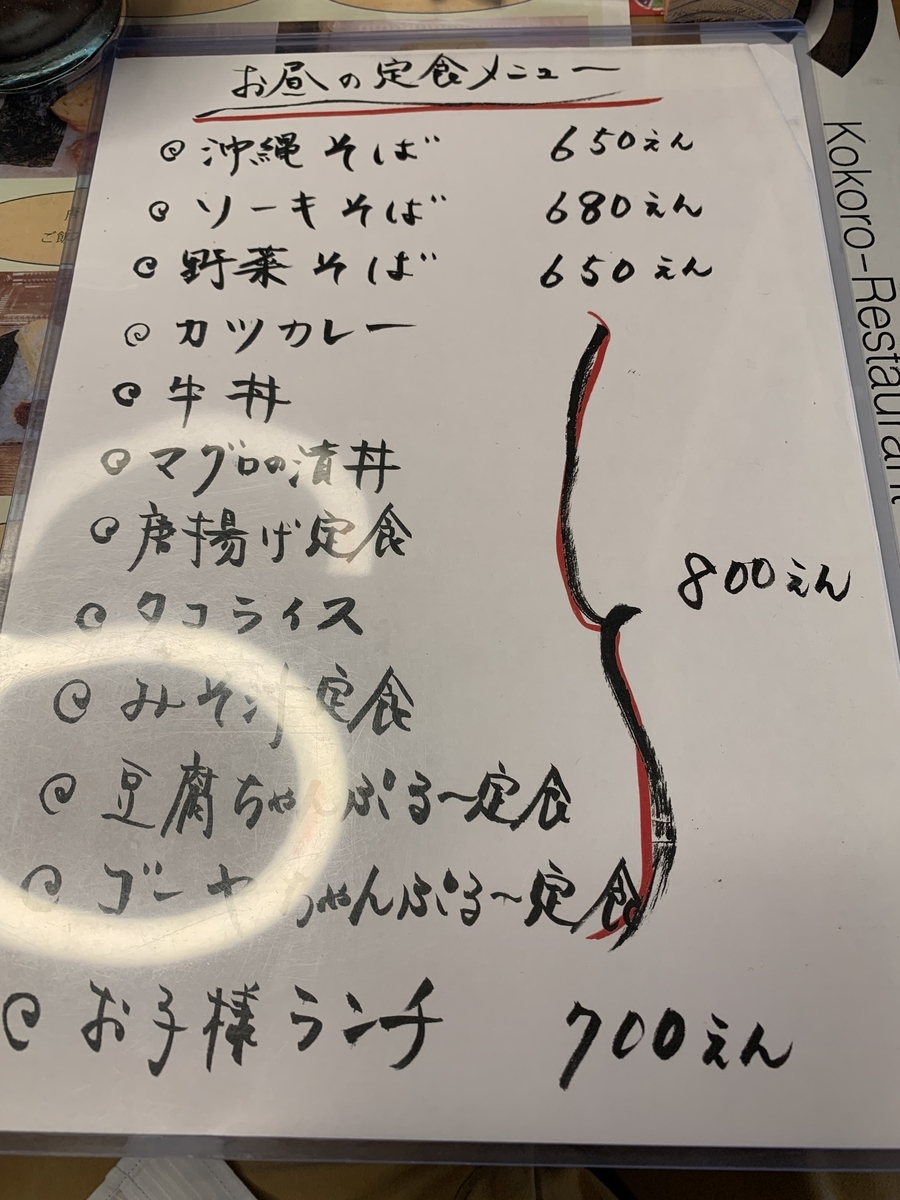 お昼の定食メニュー
沖縄そば 650えん
ソーキそば 680えん
野菜そば 650えん
カツカレー
牛丼
マグロの漬丼
唐揚げ定食
タコライス
みそ汁定食
豆腐ちゃんぷる〜定食
ゴーヤちゃんぷる〜定食
800えん
お子様ランチ 700えん
Kokoro-Restaurant